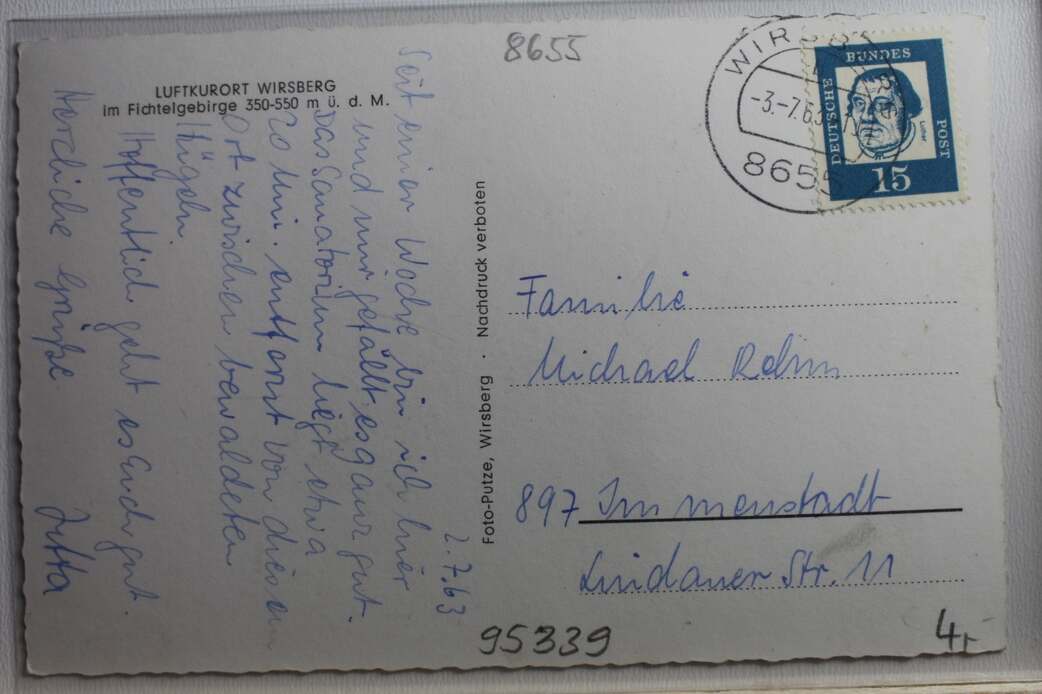 8655
LUFTKURORT WIRSBERG
im Fichtelgebirge 350-550 m ü. d. M.
2.7.63
Seit einer Woche bin ich hier
und mir gefällt es ganz gut.
Das Sanatorium liegt etwa
20 Min. entfernt von diesem
Ort zwischen bewaldeten
Hügeln
Hoffentlich geht es Euch gut.
Herzliche Grüße Jutta
Foto-Putze, Wirsberg · Nachdruck verboten
WIRSB
-3.-7.63
8655
DEUTSCHE
BUNDES
POST
Luther
15
Familie
Michael
897 Immenstadt
Lindauer Str. 11
95339
4,-